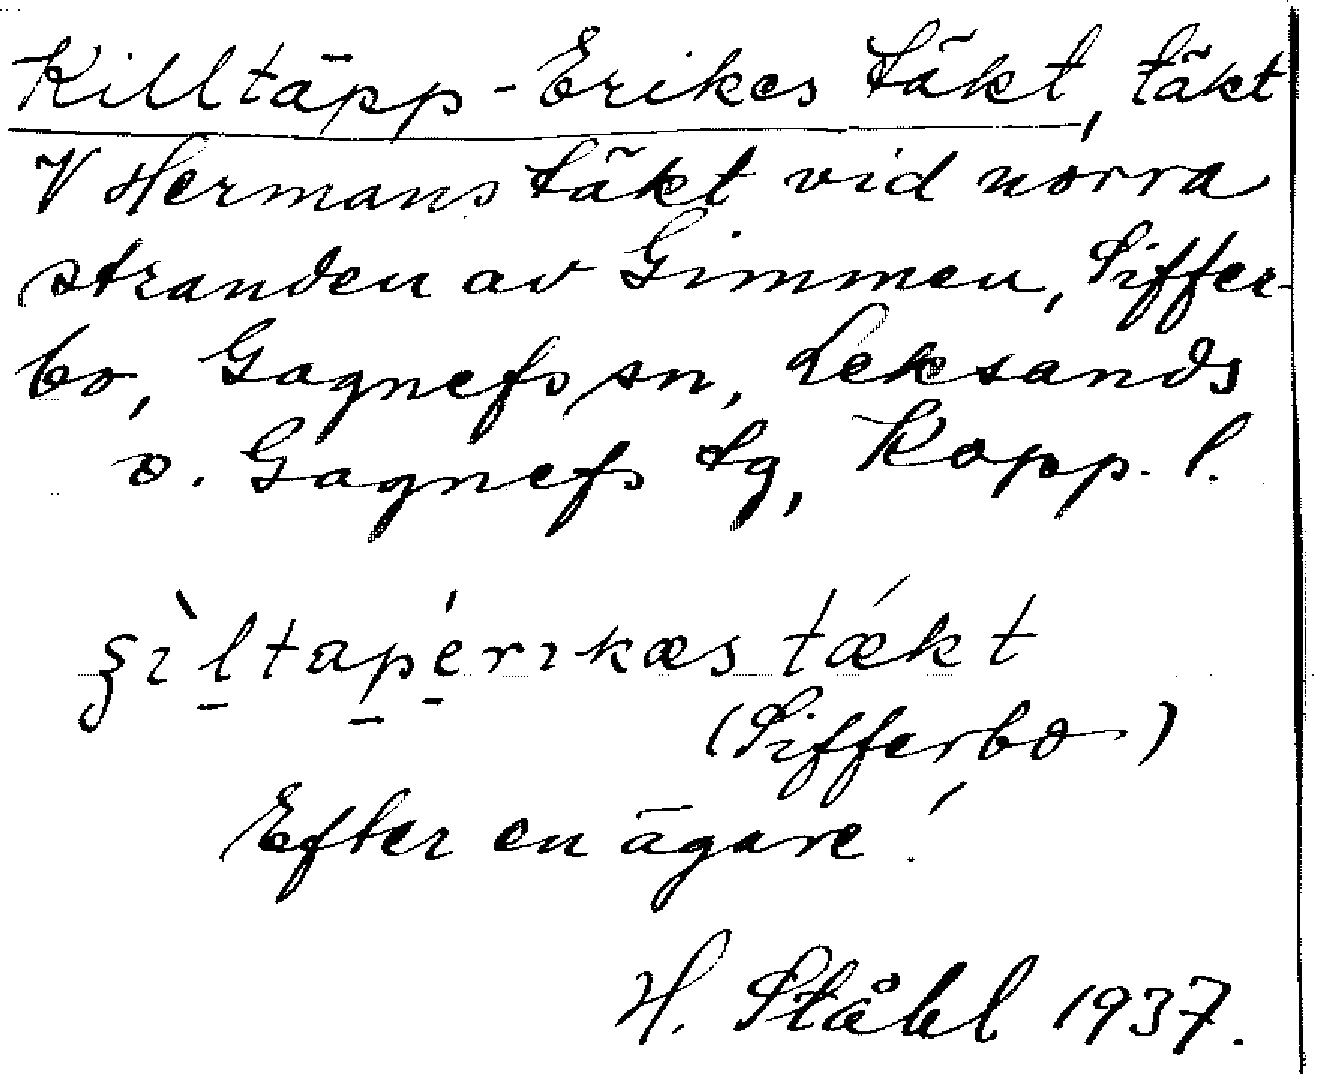 Killtäpp-Erikes täkt, täkt
V Hermans täkt vid norra
stranden av Gimmen, Siffer-
bo, Gagnefs sn, Leksands
o. Gagnefs tg, Kopp. l.
ʂìltapérıkæs tǽkt
(Sifferbo)
Efter en ägare.
H. Ståhl 1937.